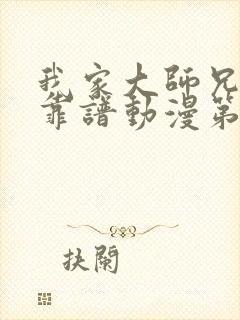 我家大師兄
靠譜動漫第
抉闌